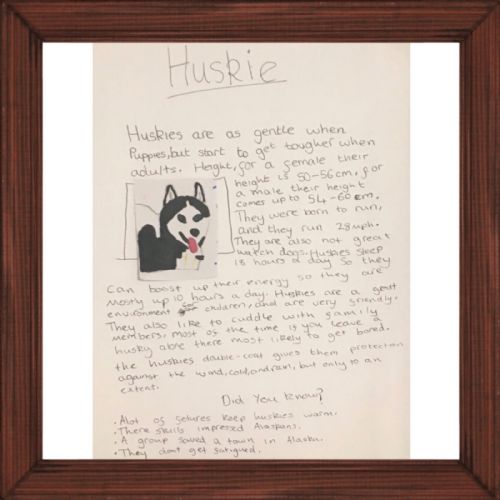 Huskie
Huskies are as gentle when
Puppies, but start to get tougher when
adults. Height, for a female their
height is 50-56cm, for
a male their height
comes up to 54-60cm.
They were born to run,
and they run 28mph.
They are also not great
watch dogs. Huskies sleep
18 hours a day so they
can boost up their energy so they are
mostly up 10 hours a day. Huskies are a great
environment for children, and are very friendly.
They also like to cuddle with family
members. most of the time if you leave a
husky alone there most likely to get bored.
the huskies double-coat gives them protection
against the wind, cold, and rain, but only to an
extent.
Did You know?
• Alot of fetures keep huskies warm.
• There skills impressed Alaskans.
• A group saved a town in Alaska.
• They dont get fatigued.